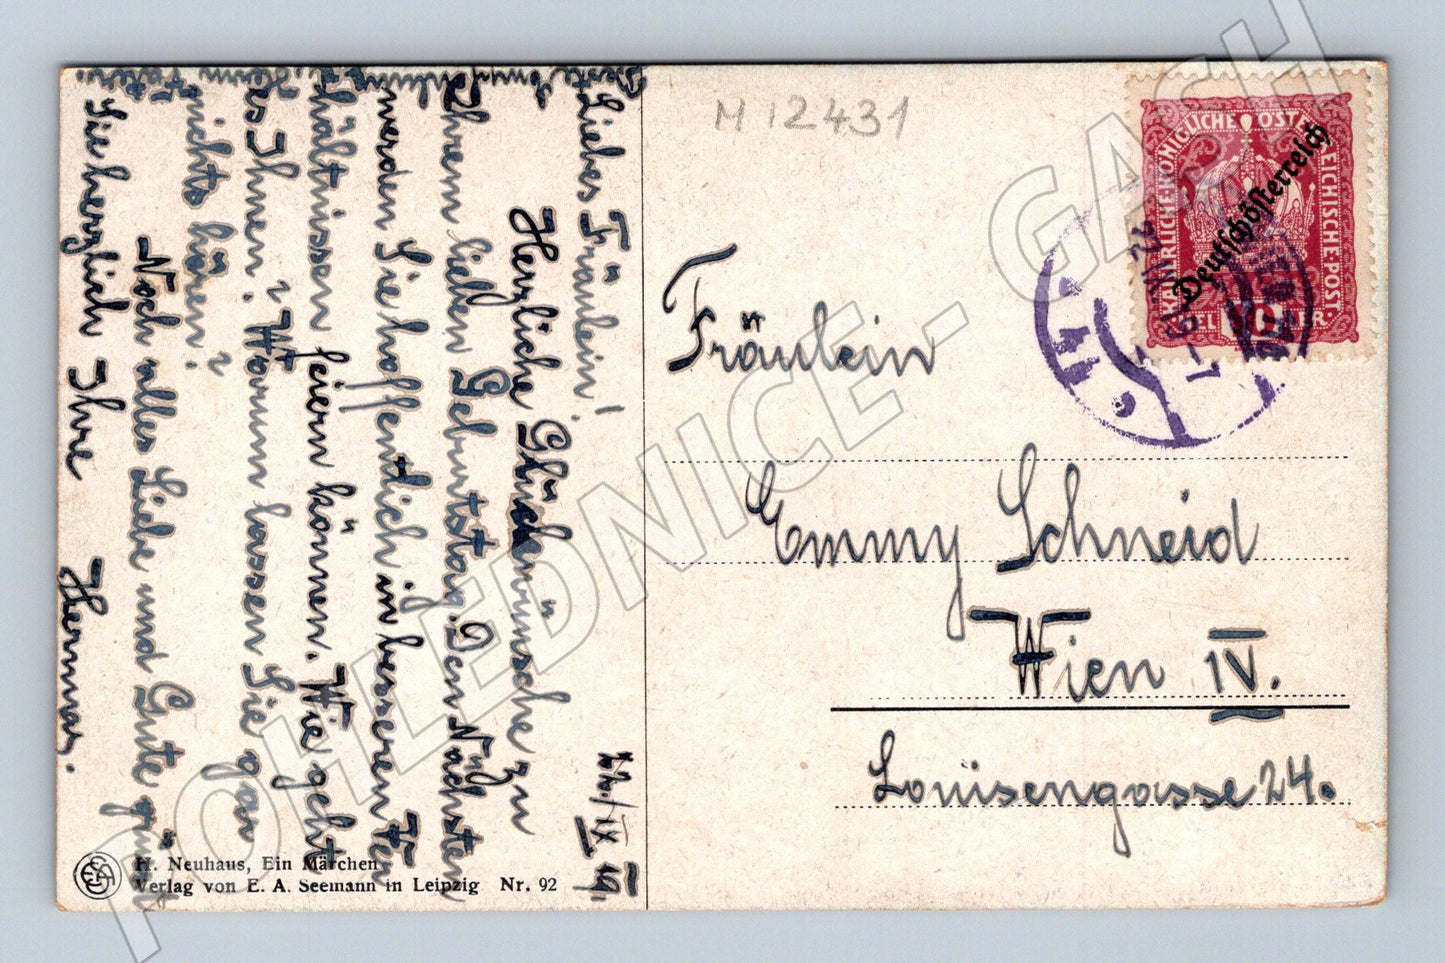 22./IX 19.
Liebes Fräulein!
Herzliche Glückwünsche zu
Ihrem lieben Geburtstag. Den Nächsten
werden Sie hoffendlich in besseren Ver
hältnissen feiern können. Wie geht
es Ihnen? Warum lassen Sie gar
nichts hören?
Noch alles Liebe und Gute grüsst
Sie herzlich Ihre Hermas.
M 12431
KAISERLICHE KÖNIGLICHE ÖSTERREICHISCHE POST.
Deutschösterreich
10
Fräulein
Emmy Schneid
Wien IV.
Louisengasse 24.
H. Neuhaus, Ein Märchen
Verlag von E. A. Seemann in Leipzig Nr. 92
POHLEDNICE - GASH